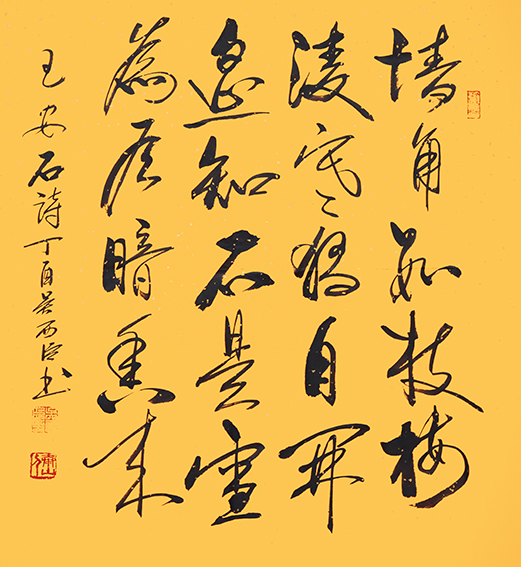 墙角数枝梅
凌寒独自開
遥知不是雪
為有暗香来
王安石詩丁酉吴西臣书